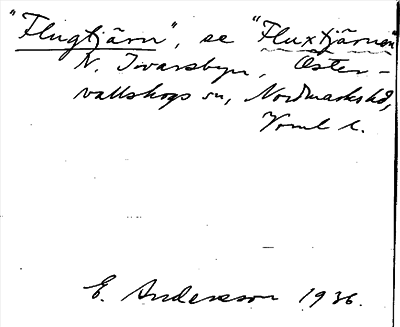 "Flugtjärn", se "Fluxtjärnen"
N. Ivarsbyn, Öster-
vallskogs sn, Nordmarks hd,
Vrml l.
E. Andersson 1936.